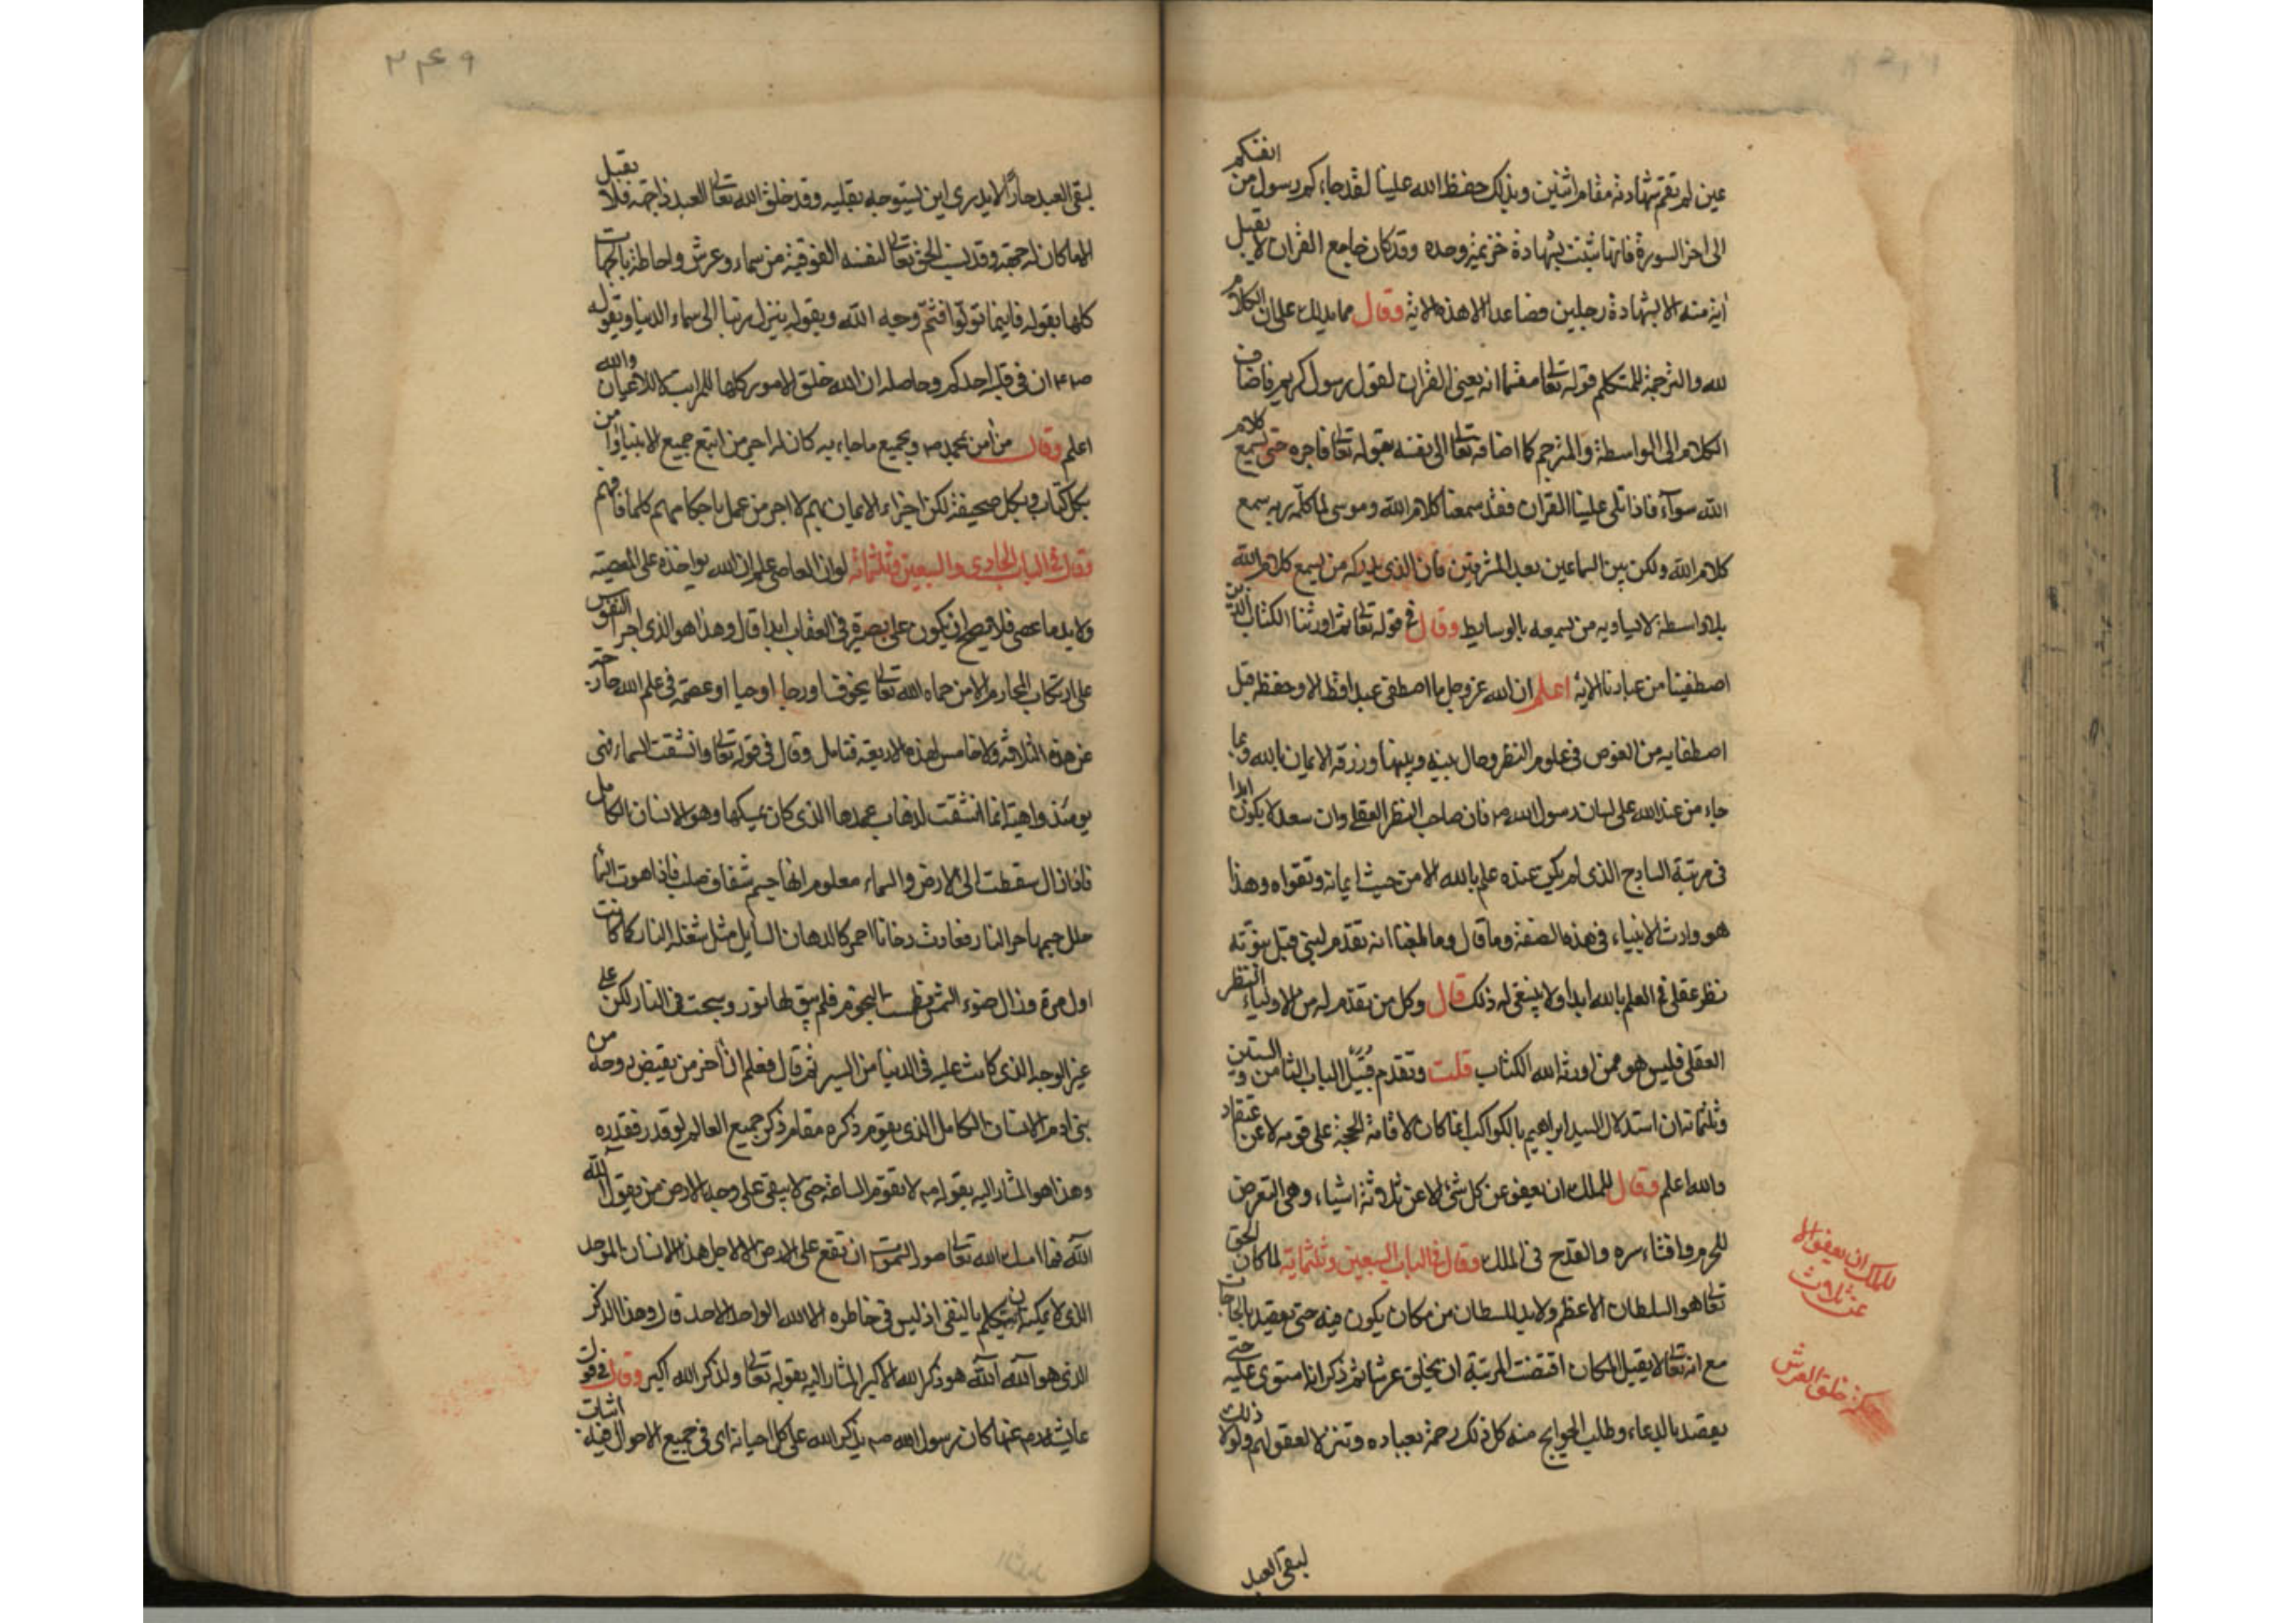 عين لم تقم شهادته مقام اثنين وبذلك حفظ الله علينا لقد جاءكم رسول من انفسكم
الى اخر السورة فانها ثبتت بشهادة خزيمة وحده وقد كان جامع القران لا يقبل
اية منه الا بشهادة رجلين فصاعدا الا هذه الاية وقال مما يدلك على ان الكلام
لله والترجمة للمتكلم قوله تعالى مقسما انه يعنى القران لقول رسول كريم فاضاف
الكلام الى الواسطة والمترجم كما اضافه تعالى الى نفسه بقوله تعالى فاجره حتى يسمع كلام
الله سوآء فاذا تلى علينا القران فقد سمعنا كلام الله وموسى لما كلمه ربه سمع
كلام الله ولكن بين السماعين بعد المشرقين فان الذى يدركه من يسمع كلام الله
بلا واسطة لا يساويه من يسمعه بالوسايط وقال في قوله تعالى ثم اورثنا الكتاب الذين
اصطفينا من عبادنا الاية اعلم ان الله عز وجل ما اصطفى عبدا قط الا وحفظه قبل
اصطفايه من الغوص فى علوم النظر وحال بينه وبينها ورزقه الايمان بالله وبما
جاء من عند الله على لسان رسول الله ص م فان صاحب النظر العقلى وان سعد لا يكون ابدا
فى مرتبة الساذج الذى لم يكن عنده علم بالله الا من حيث ايمانه وتقواه وهذا
هو وارث الانبياء فى هذه الصفة وما قال وما بلغنا انه تقدم لنبى قبل نبوته
نظر عقلى في العلم بالله ابدا ولا ينبغى له ذلك قال وكل من تقدم له من الاولياء النظر
العقلى فليس هو ممن اورثه الله الكتاب قلت وتقدم قبيل الباب الثامن والستين
وثلثمائة ان استدلال السيد ابراهيم بالكواكب انما كان لاقامة الحجة على قومه لا عن اعتقاد
والله اعلم وقال للملك ان يعفو عن كل شئ الا عن ثلاثة اشياء وهى التعرض
للحرم وافشاء سره والقدح فى الملك وقال في الباب السبعين وثلثماية لما كان الحق
تعالى هو السلطان الاعظم ولا بد للسلطان من مكان يكون فيه حتى يقصد بالحاجات
مع انه تعالى لا يقبل المكان اقتضت المرتبة ان يخلق عرشا ثم ذكر انه استوى عليه حتى
يقصد بالدعاء وطلب الحوايج منه كل ذلك رحمة بعباده وتنزلا لعقولهم ولولا ذلك
لبقى العبد
للملك ان يعفو الا
عن ثلاث
خلق العرش
٣٤٩
لبقى العبد حائرا لا يدرى اين يتوجه بقلبه وقد خلق الله تعالى العبد ذا جهة فلا يقبل
الا ما كان له جهة وقد نسب الحق تعالى لنفسه الفوقية من سماء وعرش واحاطة بالجهات
كلها بقوله فاينما تولوا فثم وجه الله وبقوله ينزل ربنا الى سماء الدنيا وبقوله
ص م ان فى قبلة احدكم وحاصله ان الله خلق الامور كلها للمراتب لا للاعيان والله
اعلم وقال من امن بمحمد ص م وبجميع ما جاء به كان له اجر من اتبع جميع الانبياء وامن
بكل كتاب وبكل صحيفة لكن اجزاء الايمان بهم لا اجر من عمل باحكامهم كلها فافهم
وقال في الباب الحادى والسبعين وثلثمائة لو ان العاصى علم ان الله يواخذه على المعصية
ولا بد ما عصى فلا يصح ان يكون على بصيرة فى العقاب ابدا قال وهذا هو الذى اجرا النفوس
على ارتكاب المحارم الا من حماه الله تعالى بخوف او رجا او حيا او عصمة فى علم الله خارجة
عن هذه الثلاثة ولا خامس لهذه الاربعة فتامل وقال فى قوله تعالى وانشقت السماء فهى
يومئذ واهية انما انشقت لذهاب عمدها الذى كان يمسكها وهو الانسان الكامل
فاذا زال سقطت الى الارض والسماء معلوم انها جسم شفاف صلب فاذا هوت السما
حلل جسمها حر النار فعادت دخانا احمر كالدهان السايل مثل شعلة النار كما كانت
اول مرة وزال ضوء الشمس وطمست النجوم فلم يبق لها نور وسبحت فى النار لكن على
غير الوجه الذى كانت عليه فى الدنيا من السير ثم قال فعلم ان اخر من يقبض روحه من
بنى ادم الانسان الكامل الذى يقوم ذكره مقام ذكر جميع العالم لو قدر فقده
وهذا هو المشار اليه بقوله ص م لا تقوم الساعة حتى لا يبقى على وجه الارض من يقول الله
الله فما امسك الله تعالى صور السموات ان تقع على الارض الا لاجل هذا الانسان الموحد
الذى لا يمكنه ان يتكلم بالنفى اذ ليس فى خاطره الا الله الواحد الاحد قال وهذا الذكر
الذى هو الله الله هو ذكر الله الاكبر المشار اليه بقوله تعالى ولذكر الله اكبر وقال فى قول
عايشة رض عنها كان رسول الله ص م يذكر الله على كل احيانه اى فى جميع الاحوال فيه اثبات